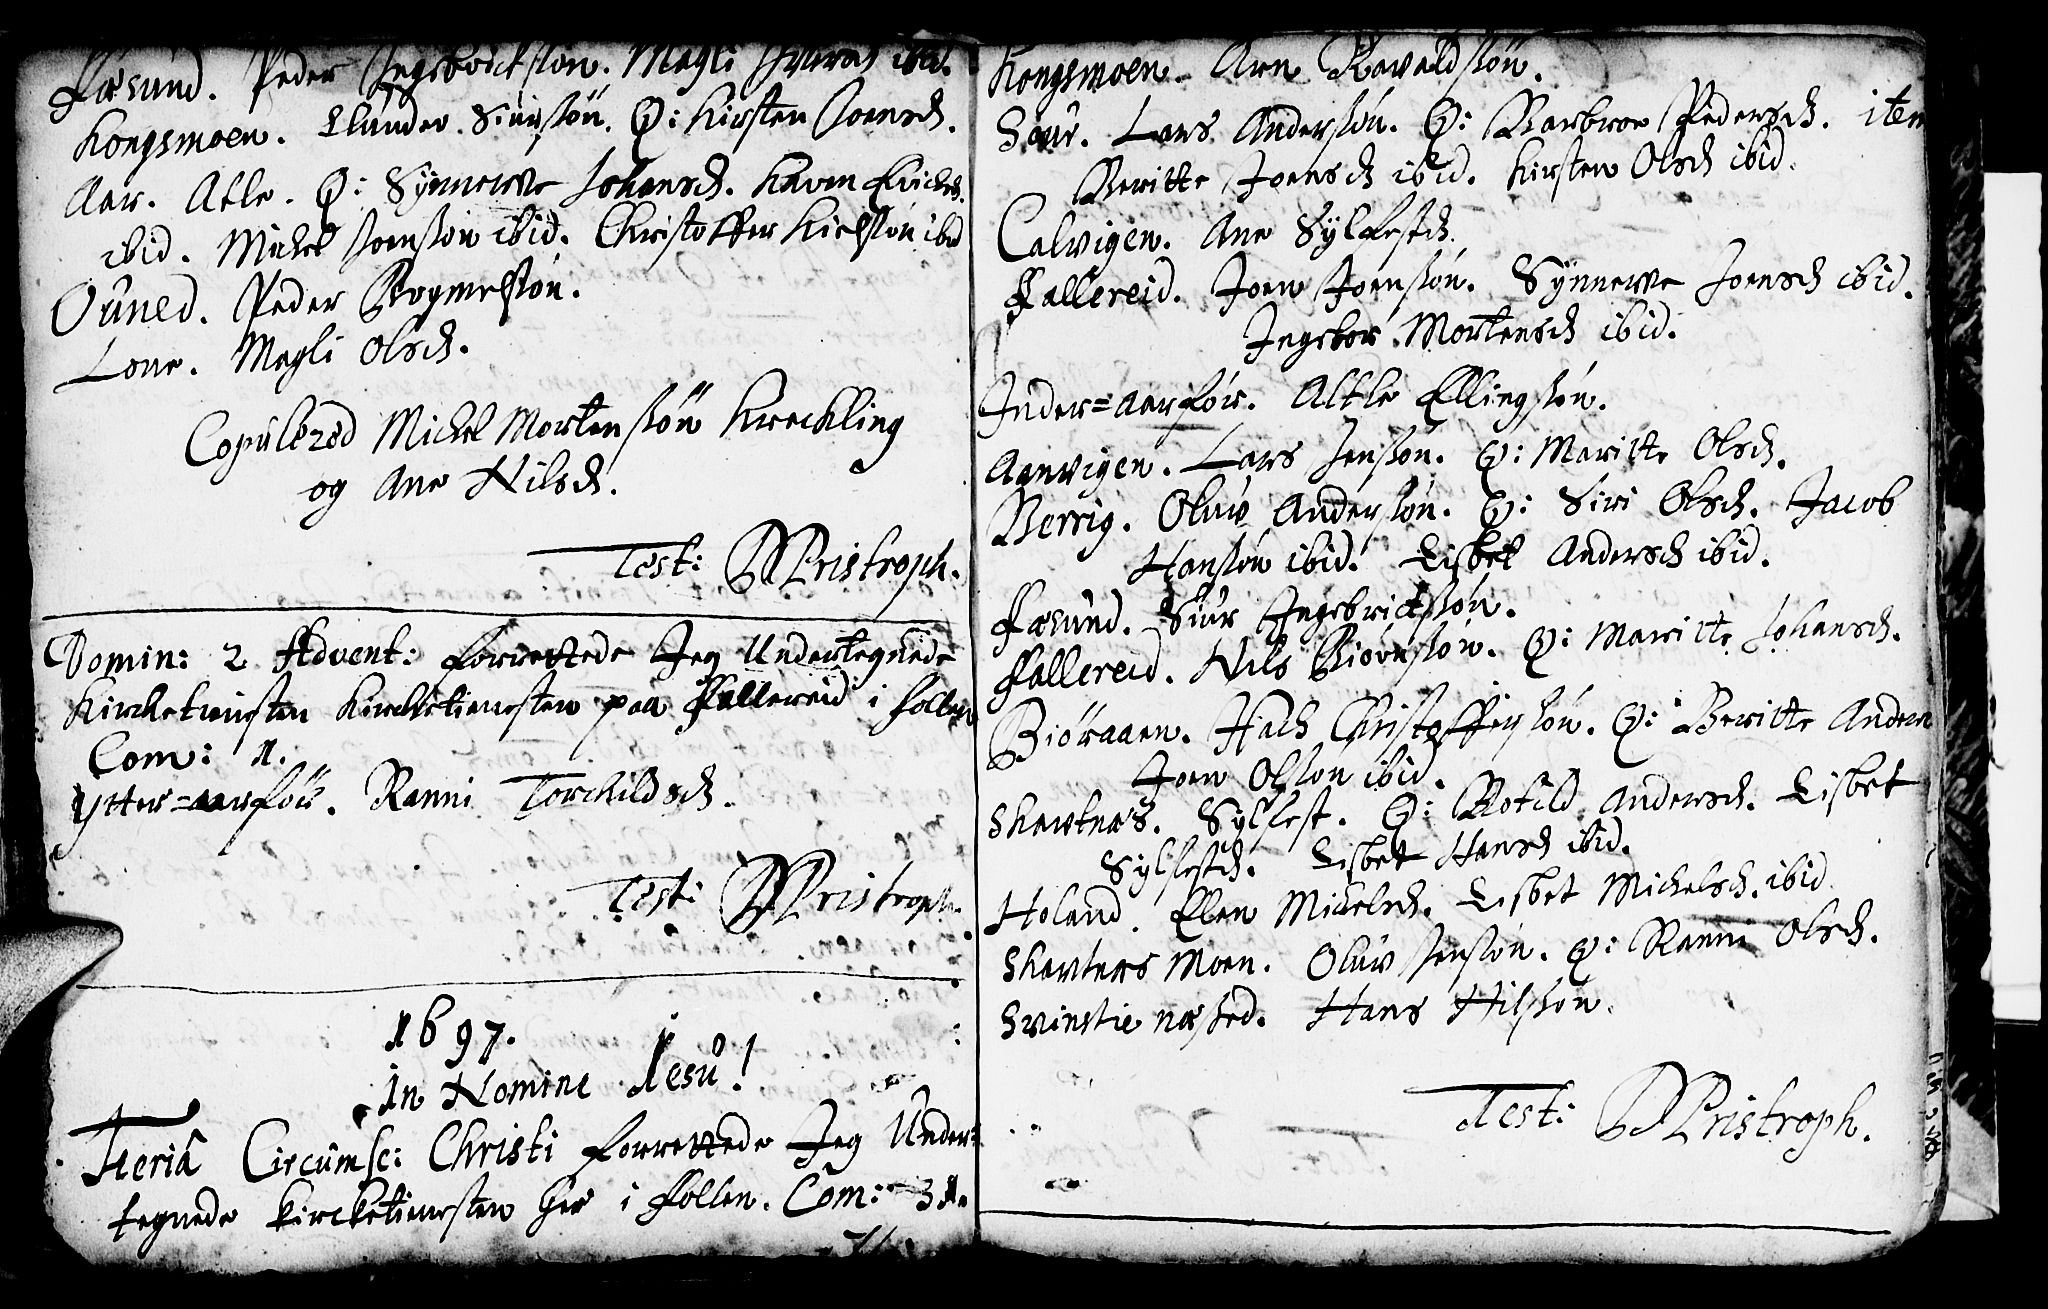 Fæsund. Peder Ingebrictsøn. Magli ibid.
Kongsmoen. Elunder Siursøn. Q: Kirsten Joensd.
Aar. Atle. Q: Synnewe Johansd. Karen Erichsd.
ibid. Michel Joensøn ibid. Christoffer Kielsøn ibid
Ouned. Peder Bogmelsøn.
Lone. Magli Olsd.
Copulered Michel Mortensøn Kreckling
og Ane Nilsd.
Test: DPristroph.
Domin: 2 Advent: forrettede Jeg Undertegnede
Kircketienisten paa Fallereid i Follen
Com: 1.
Ytter=aarför. Ranni Torchildsd.
Test: DPristroph.
1697.
In Nomine Jesu!
Feriâ Circumsc: Christi forrettede Jeg Under:
tegnede kircketienesten her i Follen. Com: 31.
Kongsmoen. Arn Rawaldsøn.
Høur. Lars Andersøn. Q: Barbroe Pedersd. item
Beritte Joensd ibid. Kirsten Olsd ibid.
Calvigen. Ane Sylfestd.
Fallereid. Joen Joensøn. Synnewe Joensd ibid.
Ingebor Mortensd ibid.
Inder=aarför. Altle Ellingsøn.
Aanvigen. Lars Jensøn. Q: Maritte Olsd.
Berrig. Oluv Andersøn. Q: Siri Olsd. Jacob
Hansøn ibid. Lisbet Andersd ibid.
Fæsund. Siur Ingebrictsøn.
Fallereid. Nils Biørnsøn. Q: Maritte Johansd.
Biöraaen. Hach Christoffersøn. Q: Beritte Anders
Joen Olsøn ibid.
Skartnæs. Sylfest. Q: Botild Andersd. Lisbet
Sylfestd. Lisbet Hansd ibid.
Holand. Elen Michelsd. Lisbet Michelsd. ibid
Skartnæs Moen. Oluv Jensøn. Q: Ranni Olsd.
Svinstie næsted. Hans Nilsøn.
Test: DPristroph.